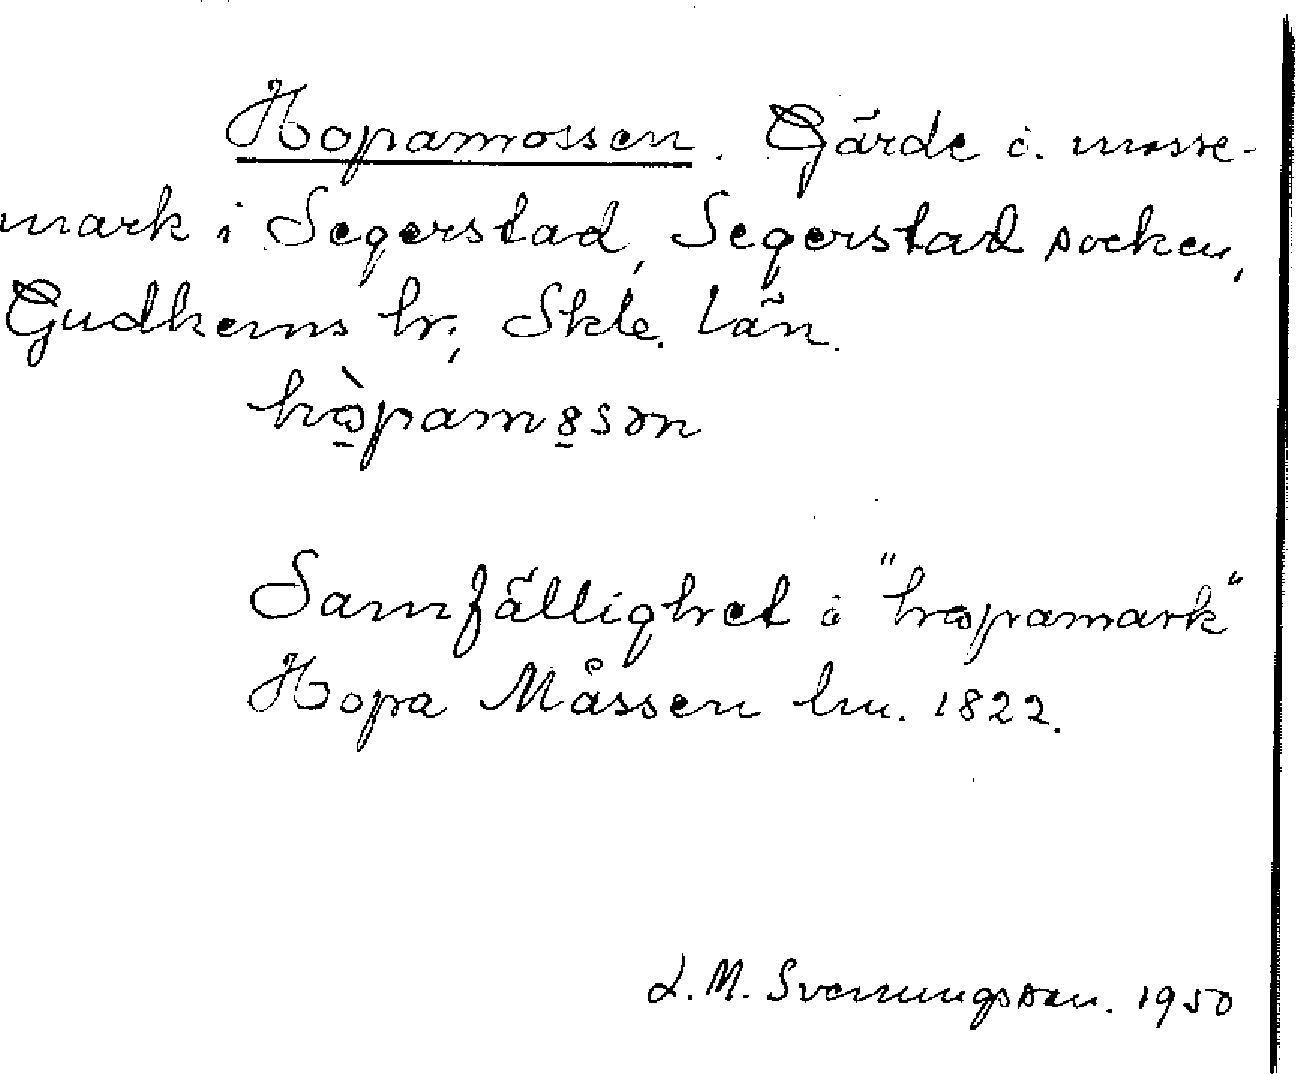 Hopamossen. Gärde o. mosse-
mark i Segerstad, Segerstad socken,
Gudhems hr., Skb. län.
hò̱pamo̱sən
Samfällighet i "hopamark"
Hopa Måssen hu. 1822.
L. M. Svenungsson. 1950